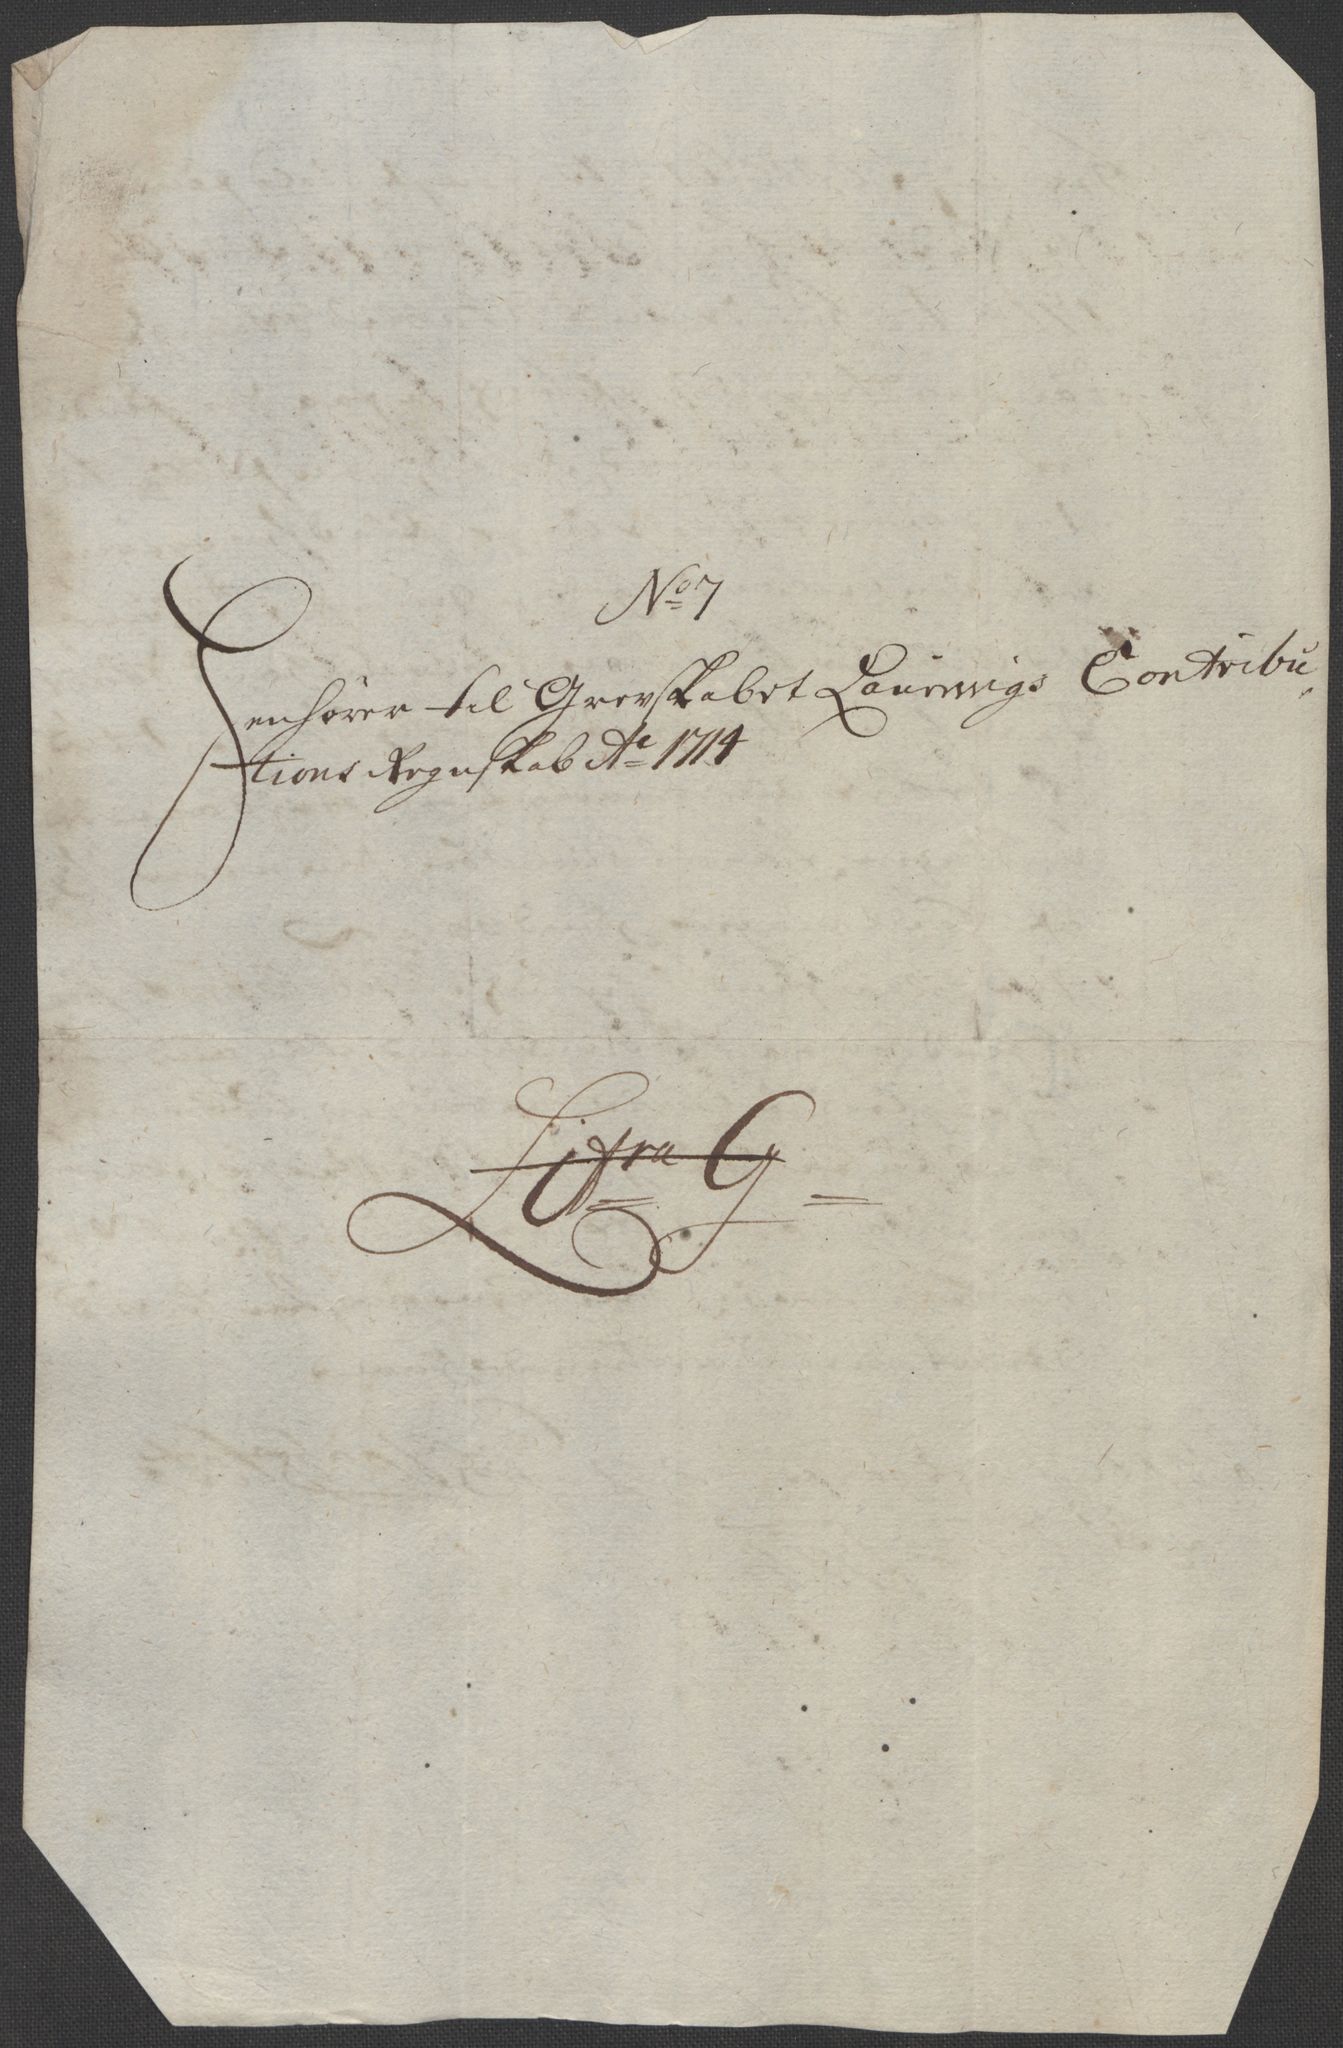 No 7
Henhörer til Grevskabet Laurwigs Contribu
tions Regnskab Ao 1714
Litra G